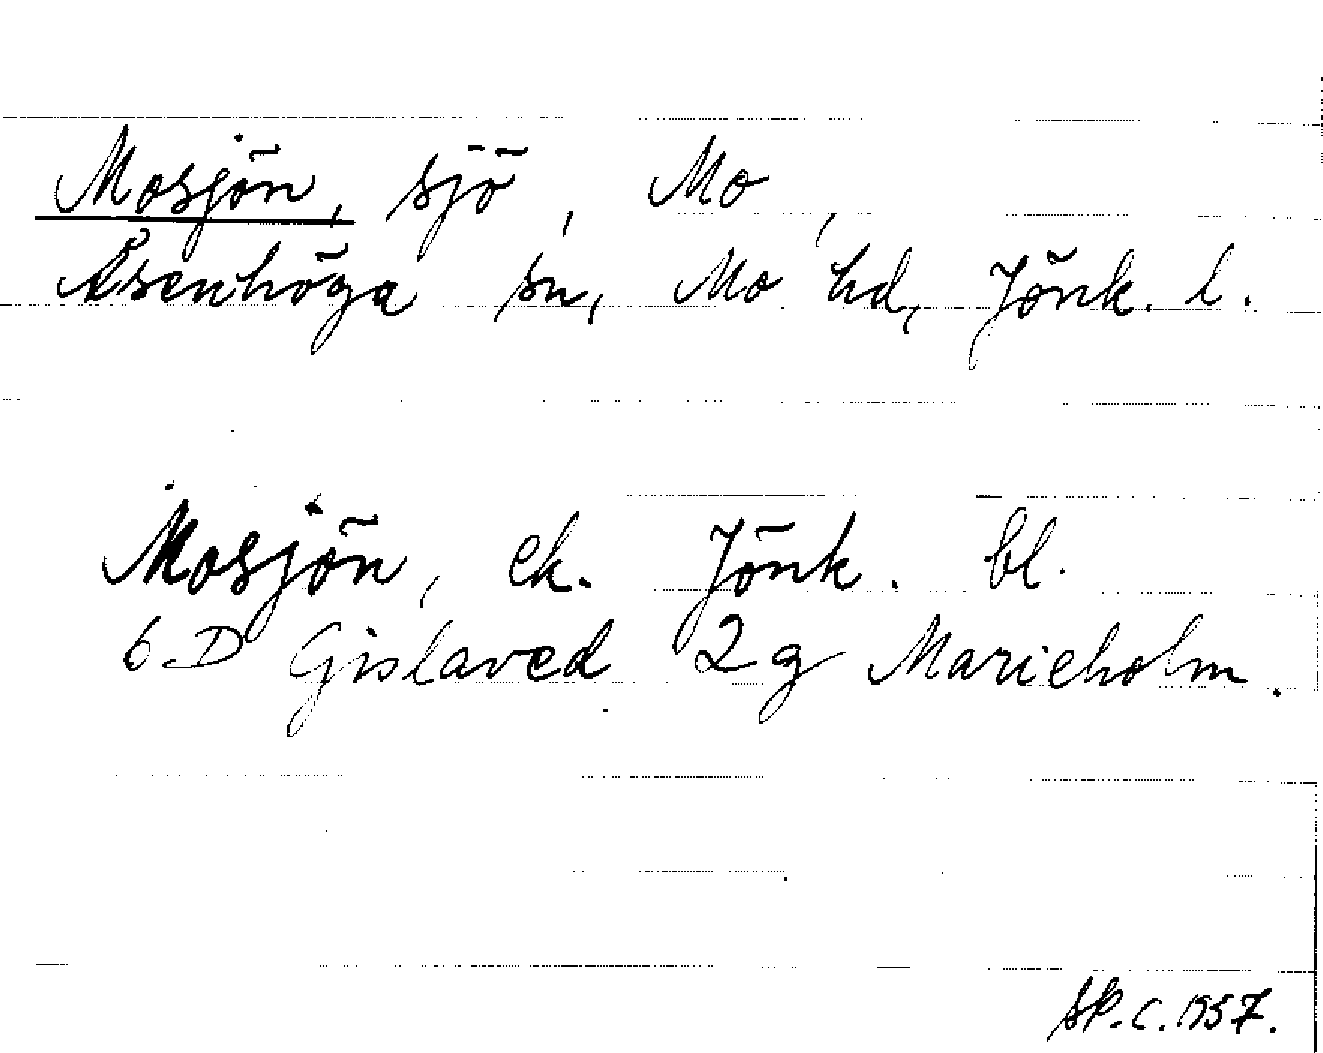 Mosjön, sjö, Mo,
Åsenhöga sn, Mo hd, Jönk. l.
Mosjön, ek. Jönk. bl.
6 D Gislaved 2 g Marieholm.
SP. c. 1957.